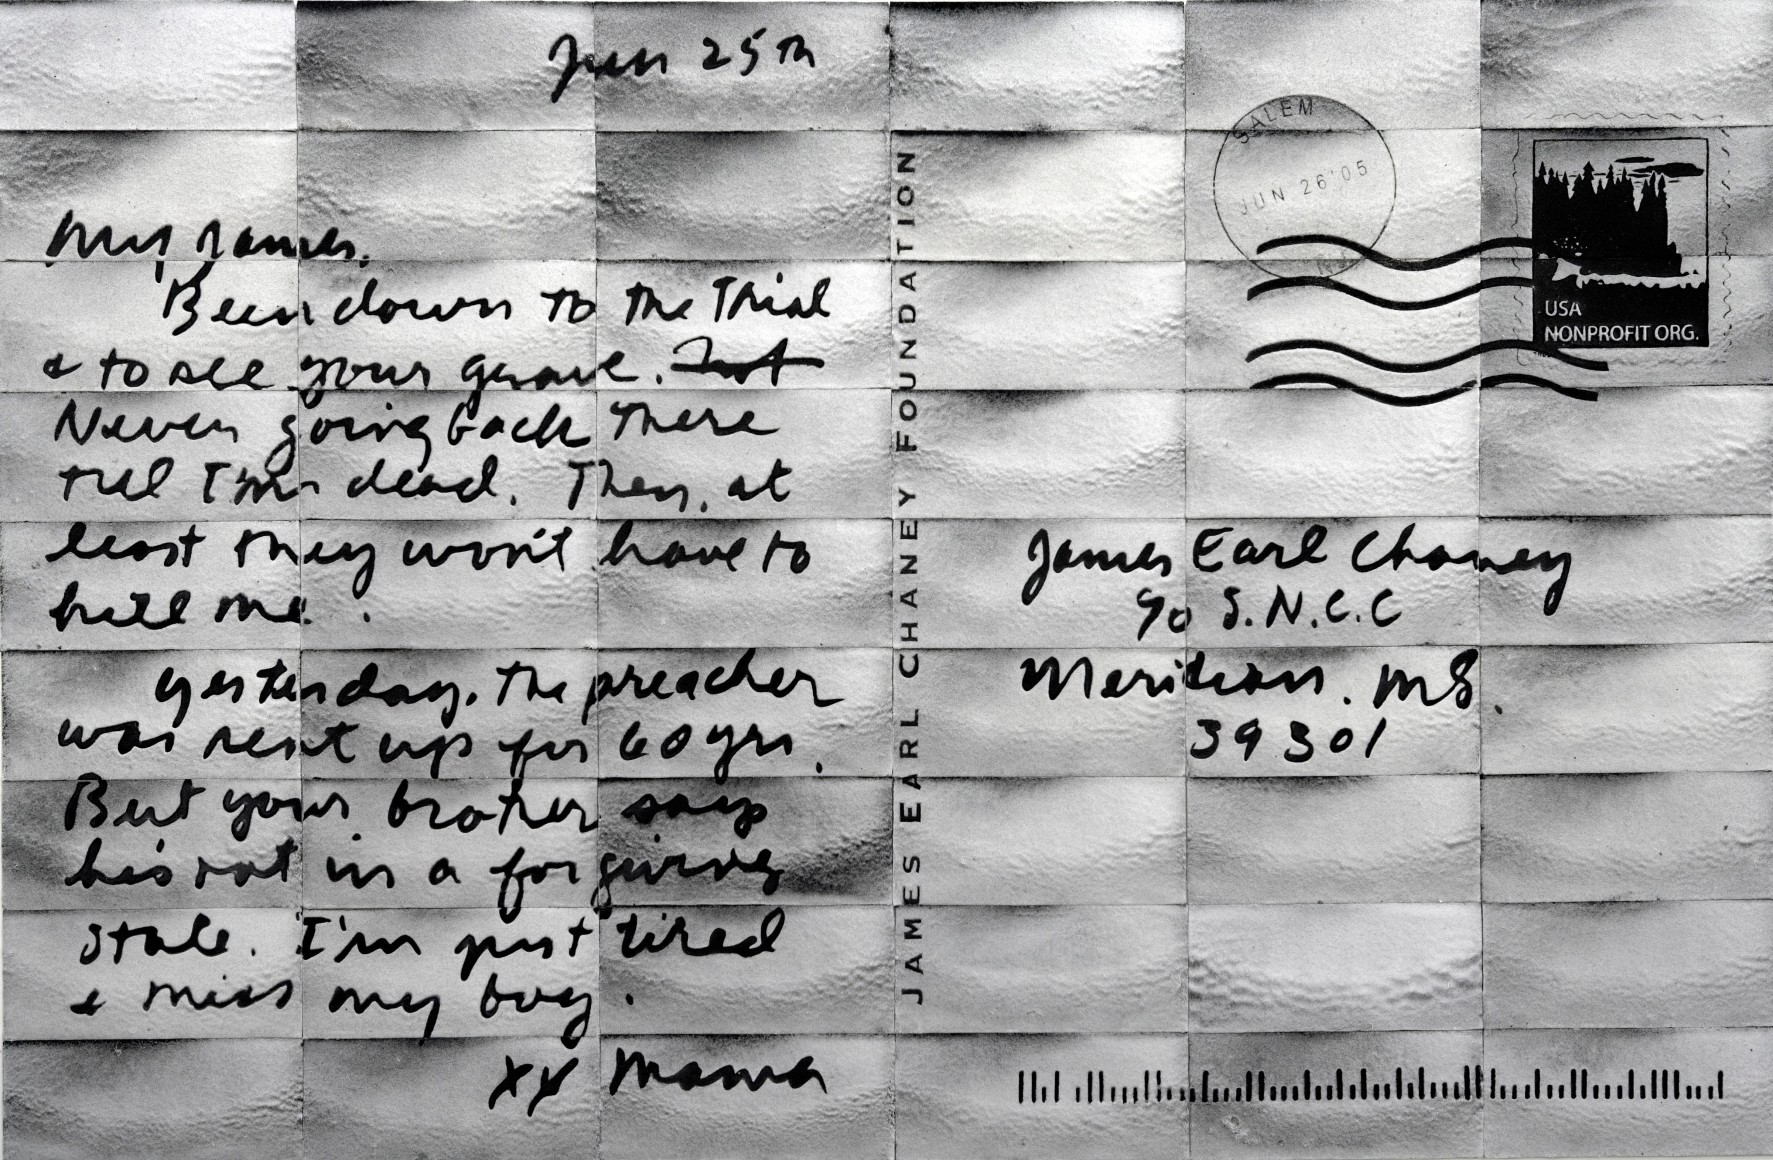 Jun 25th
My James,
Been down to the Trial
& to see your grave.
Never going back there
till I'm dead. Then, at
least they won't have to
kill me.
yesterday, the preacher
was sent up for 60 yrs.
But your brother says
he's not in a forgiving
state. I'm just tired
& miss my boy.
xx Mama
JAMES EARL CHANEY FOUNDATION
SALEM
JUN 26'05
NJ
USA
NONPROFIT ORG.
James Earl Chaney
℅ S.N.C.C
Meridian, MS.
39301